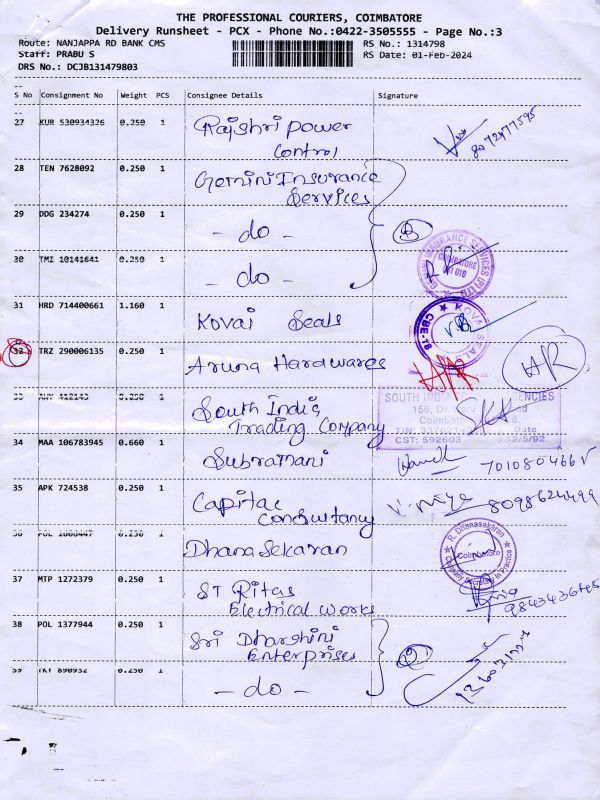 THE PROFESSIONAL COURIERS, COIMBATORE
Delivery Runsheet - PCX - Phone No.:0422-3505555 - Page No.:3
Route: NANJAPPA RD BANK CMS
RS No.: 1314798
Staff: PRABU S
RS Date: 01-Feb-2024
DRS No.: DCJB131479803
S No Consignment No Weight PCS Consignee Details Signature
27 KUR 530934326 0.250 1 Rajshri Power
Control
28 TEN 7628092 0.250 1 Gemini Insurance
Services
29 DDG 234274 0.250 1 - do -
30 TMI 10141641 0.250 1 - do -
31 HRD 714400661 1.160 1 Kovai Seals
32 TRZ 290006135 0.250 1 Aruna Hardwares
33 0.250 1 South India
Trading Company
SOUTH INDIA AGENCIES
CST: 592603 12/5/92
34 MAA 106783945 0.660 1 Subramani
35 APK 724538 0.250 1 Capital
Consultancy
8098624499
36 0.250 1 Dhana Sekaran
R. Dhanasekaran
Coimbatore
Company Secretary in Practice
37 MTP 1272379 0.250 1 ST Ritas
Electrical Works
38 POL 1377944 0.250 1 Sri Dharshini
Enterprises
39 TKT 890952 0.250 1 - do -